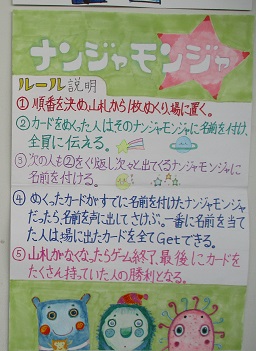 ナンジャモンジャ
ルール説明
① 順番を決め、山札から1枚めくり、場に置く。
② カードをめくった人はそのナンジャモンジャに名前を付け、
全員に伝える。
③ 次の人も②をくり返し次々と出てくるナンジャモンジャに
名前を付ける。
④ めくったカードがすでに名前を付けたナンジャモンジャ
だったら、名前を声に出してさけぶ。一番に名前を当て
た人は場に出たカードを全てGetできる。
⑤ 山札がなくなったらゲーム終了、最後にカードを
たくさん持っていた人の勝利となる。